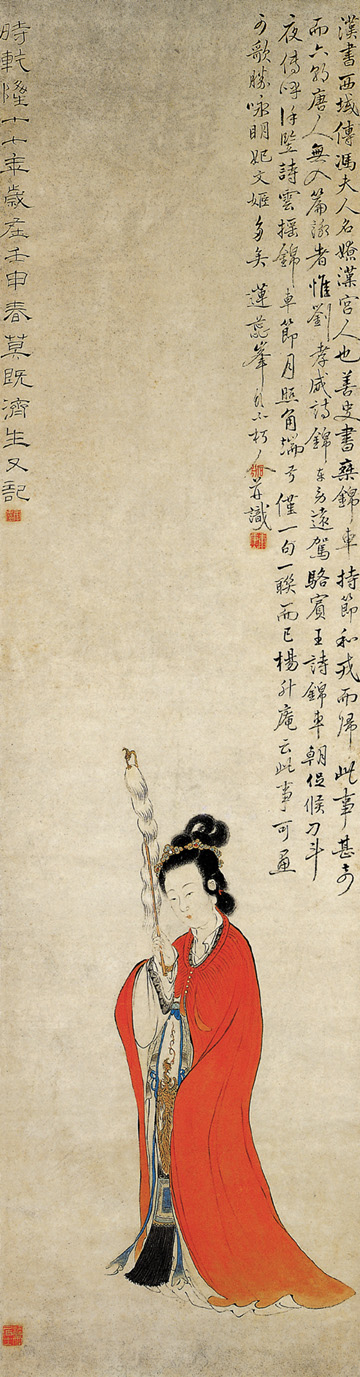 漢書西域傳馮夫人名嫽漢宮人也善史書乘錦車持節和戎而歸此事甚奇
而六朝唐人無入篇詠者惟劉孝威詩錦車勞遠駕駱賓王詩錦車朝促候刀斗
夜傳呼徐堅詩雲搖錦車節月照角端弓僅一句一聯而已楊升庵云此事可畫
可歌勝咏明妃文姬多矣 蓮蕊峯 不朽 并識
時乾隆十七年歲在壬申春莫既濟生又記